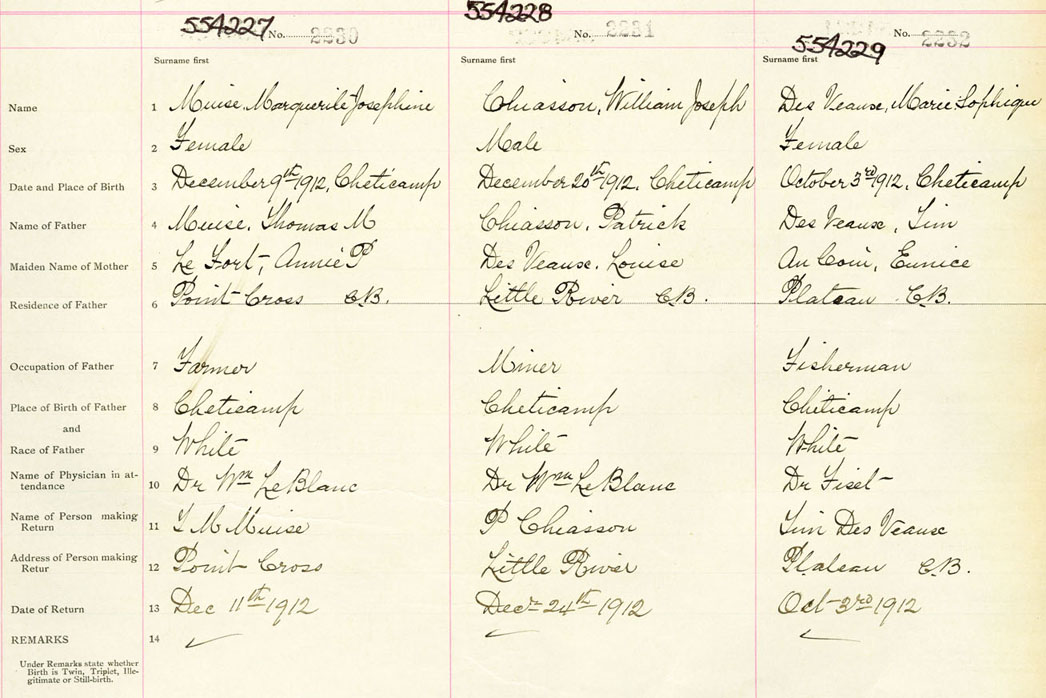 554227 No. 2230
554228 No. 2231
554229 No. 2232
Surname first Surname first Surname first
Name 1 Muise, Marguerite Josephine Chiasson, William Joseph Des Veaux, Marie Sophique
Sex 2 Female Male Female
Date and Place of Birth 3 December 9th 1912, Cheticamp December 20th 1912, Cheticamp October 3rd 1912, Cheticamp
Name of Father 4 Muise, Thomas M Chiasson, Patrick Des Veaux, Sim
Maiden Name of Mother 5 Le Fort, Annie P Des Veaux, Louise Au Coin, Eunice
Residence of Father 6 Point Cross C.B. Little River C.B. Plateau C.B.
Occupation of Father 7 Farmer Miner Fisherman
Place of Birth of Father 8 Cheticamp Cheticamp Cheticamp
and
Race of Father 9 White White White
Name of Physician in at-
tendance 10 Dr Wm LeBlanc Dr Wm LeBlanc Dr Fiset
Name of Person making
Return 11 T M Muise P Chiasson Sim Des Veaux
Address of Person making
Retur 12 Point Cross Little River Plateau C.B.
Date of Return 13 Dec 11th 1912 Decr 24th 1912 Oct 3rd 1912
REMARKS 14
Under Remarks state whether
Birth is Twin, Triplet, Ille-
gitimate or Still-birth.